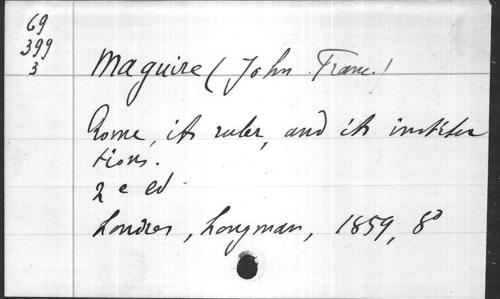 69
399
3
Maguire (John Franc.)
Rome, its ruler, and its institu
tions.
2e ed.
Londres, Longman, 1859, 8º